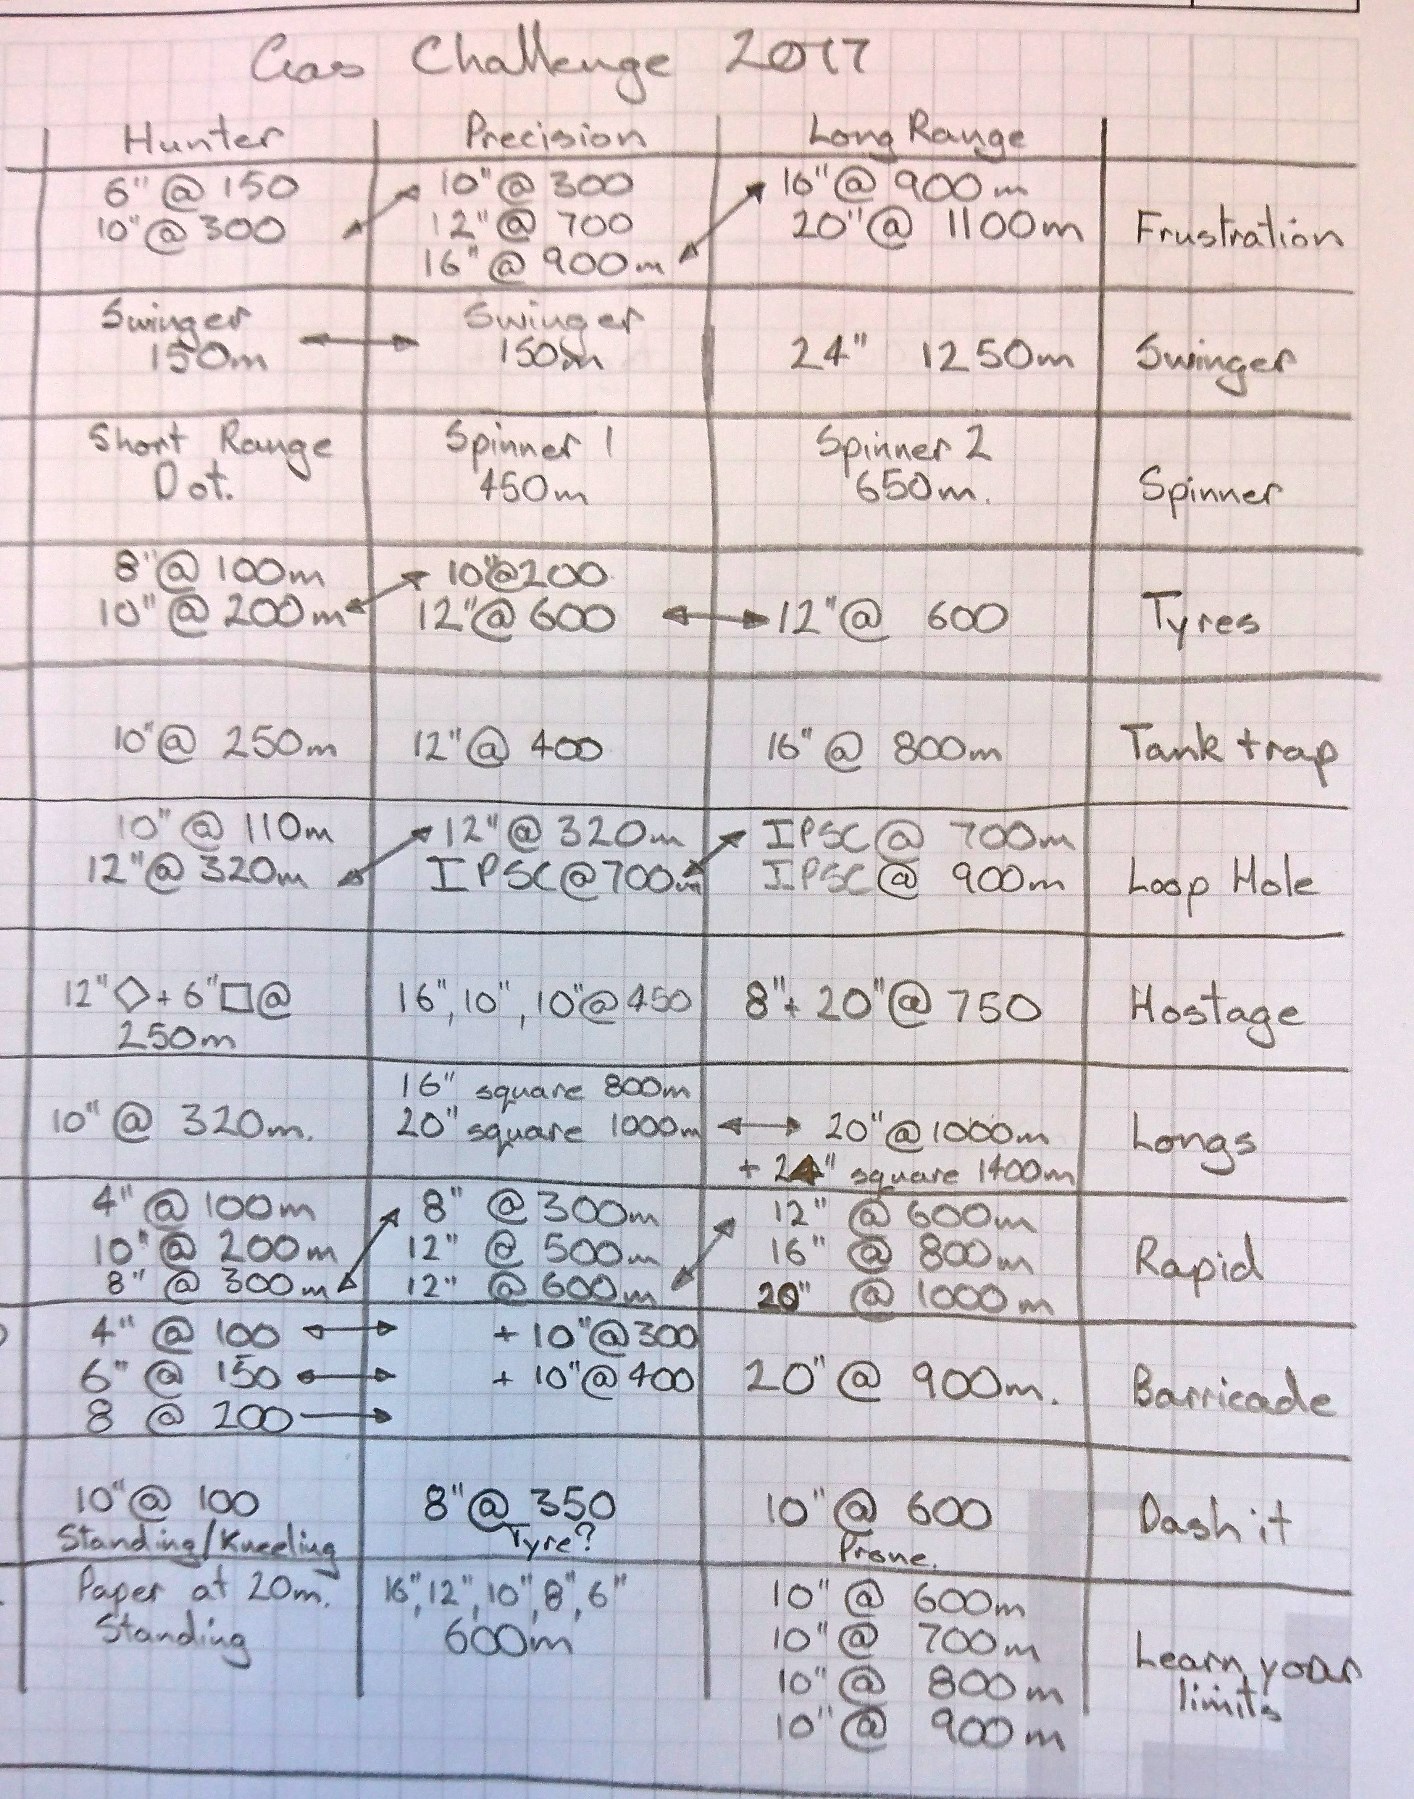 Gas Challenge 2017
Hunter Precision Long Range
6" @ 150 10" @ 300 16" @ 900m
10" @ 300 12" @ 700 20" @ 1100m Frustration
16" @ 900m
Swinger Swinger
150m 150m 24" 1250m Swinger
Short Range Spinner 1 Spinner 2
Dot. 450m 650m. Spinner
8" @ 100m 10"@200
10" @ 200m 12"@ 600 12"@ 600 Tyres
10"@ 250m 12"@ 400 16" @ 800m Tank trap
10" @ 110m 12" @ 320m IPSC @ 700m
12"@ 320m IPSC@700m IPSC @ 900m Loop Hole
12"◇+ 6"□@ 16", 10", 10"@450 8"+ 20"@ 750 Hostage
250m
16" square 800m
10" @ 320m. 20" square 1000m 20"@1000m Longs
+ 24" square 1400m
4" @ 100m 8" @ 300m 12" @ 600m
10" @ 200m 12" @ 500m 16" @ 800m Rapid
8" @ 300m 12" @ 600m 20" @ 1000m
4" @ 100 + 10"@300
6" @ 150 + 10"@400 20"@ 900m. Barricade
8 @ 200
10"@ 100 8"@ 350 10"@ 600 Dash it
Standing/Kneeling Tyre? Prone.
Paper at 20m. 16", 12", 10", 8", 6" 10" @ 600m
Standing 600m 10"@ 700m Learn your
10"@ 800m limits
10"@ 900m